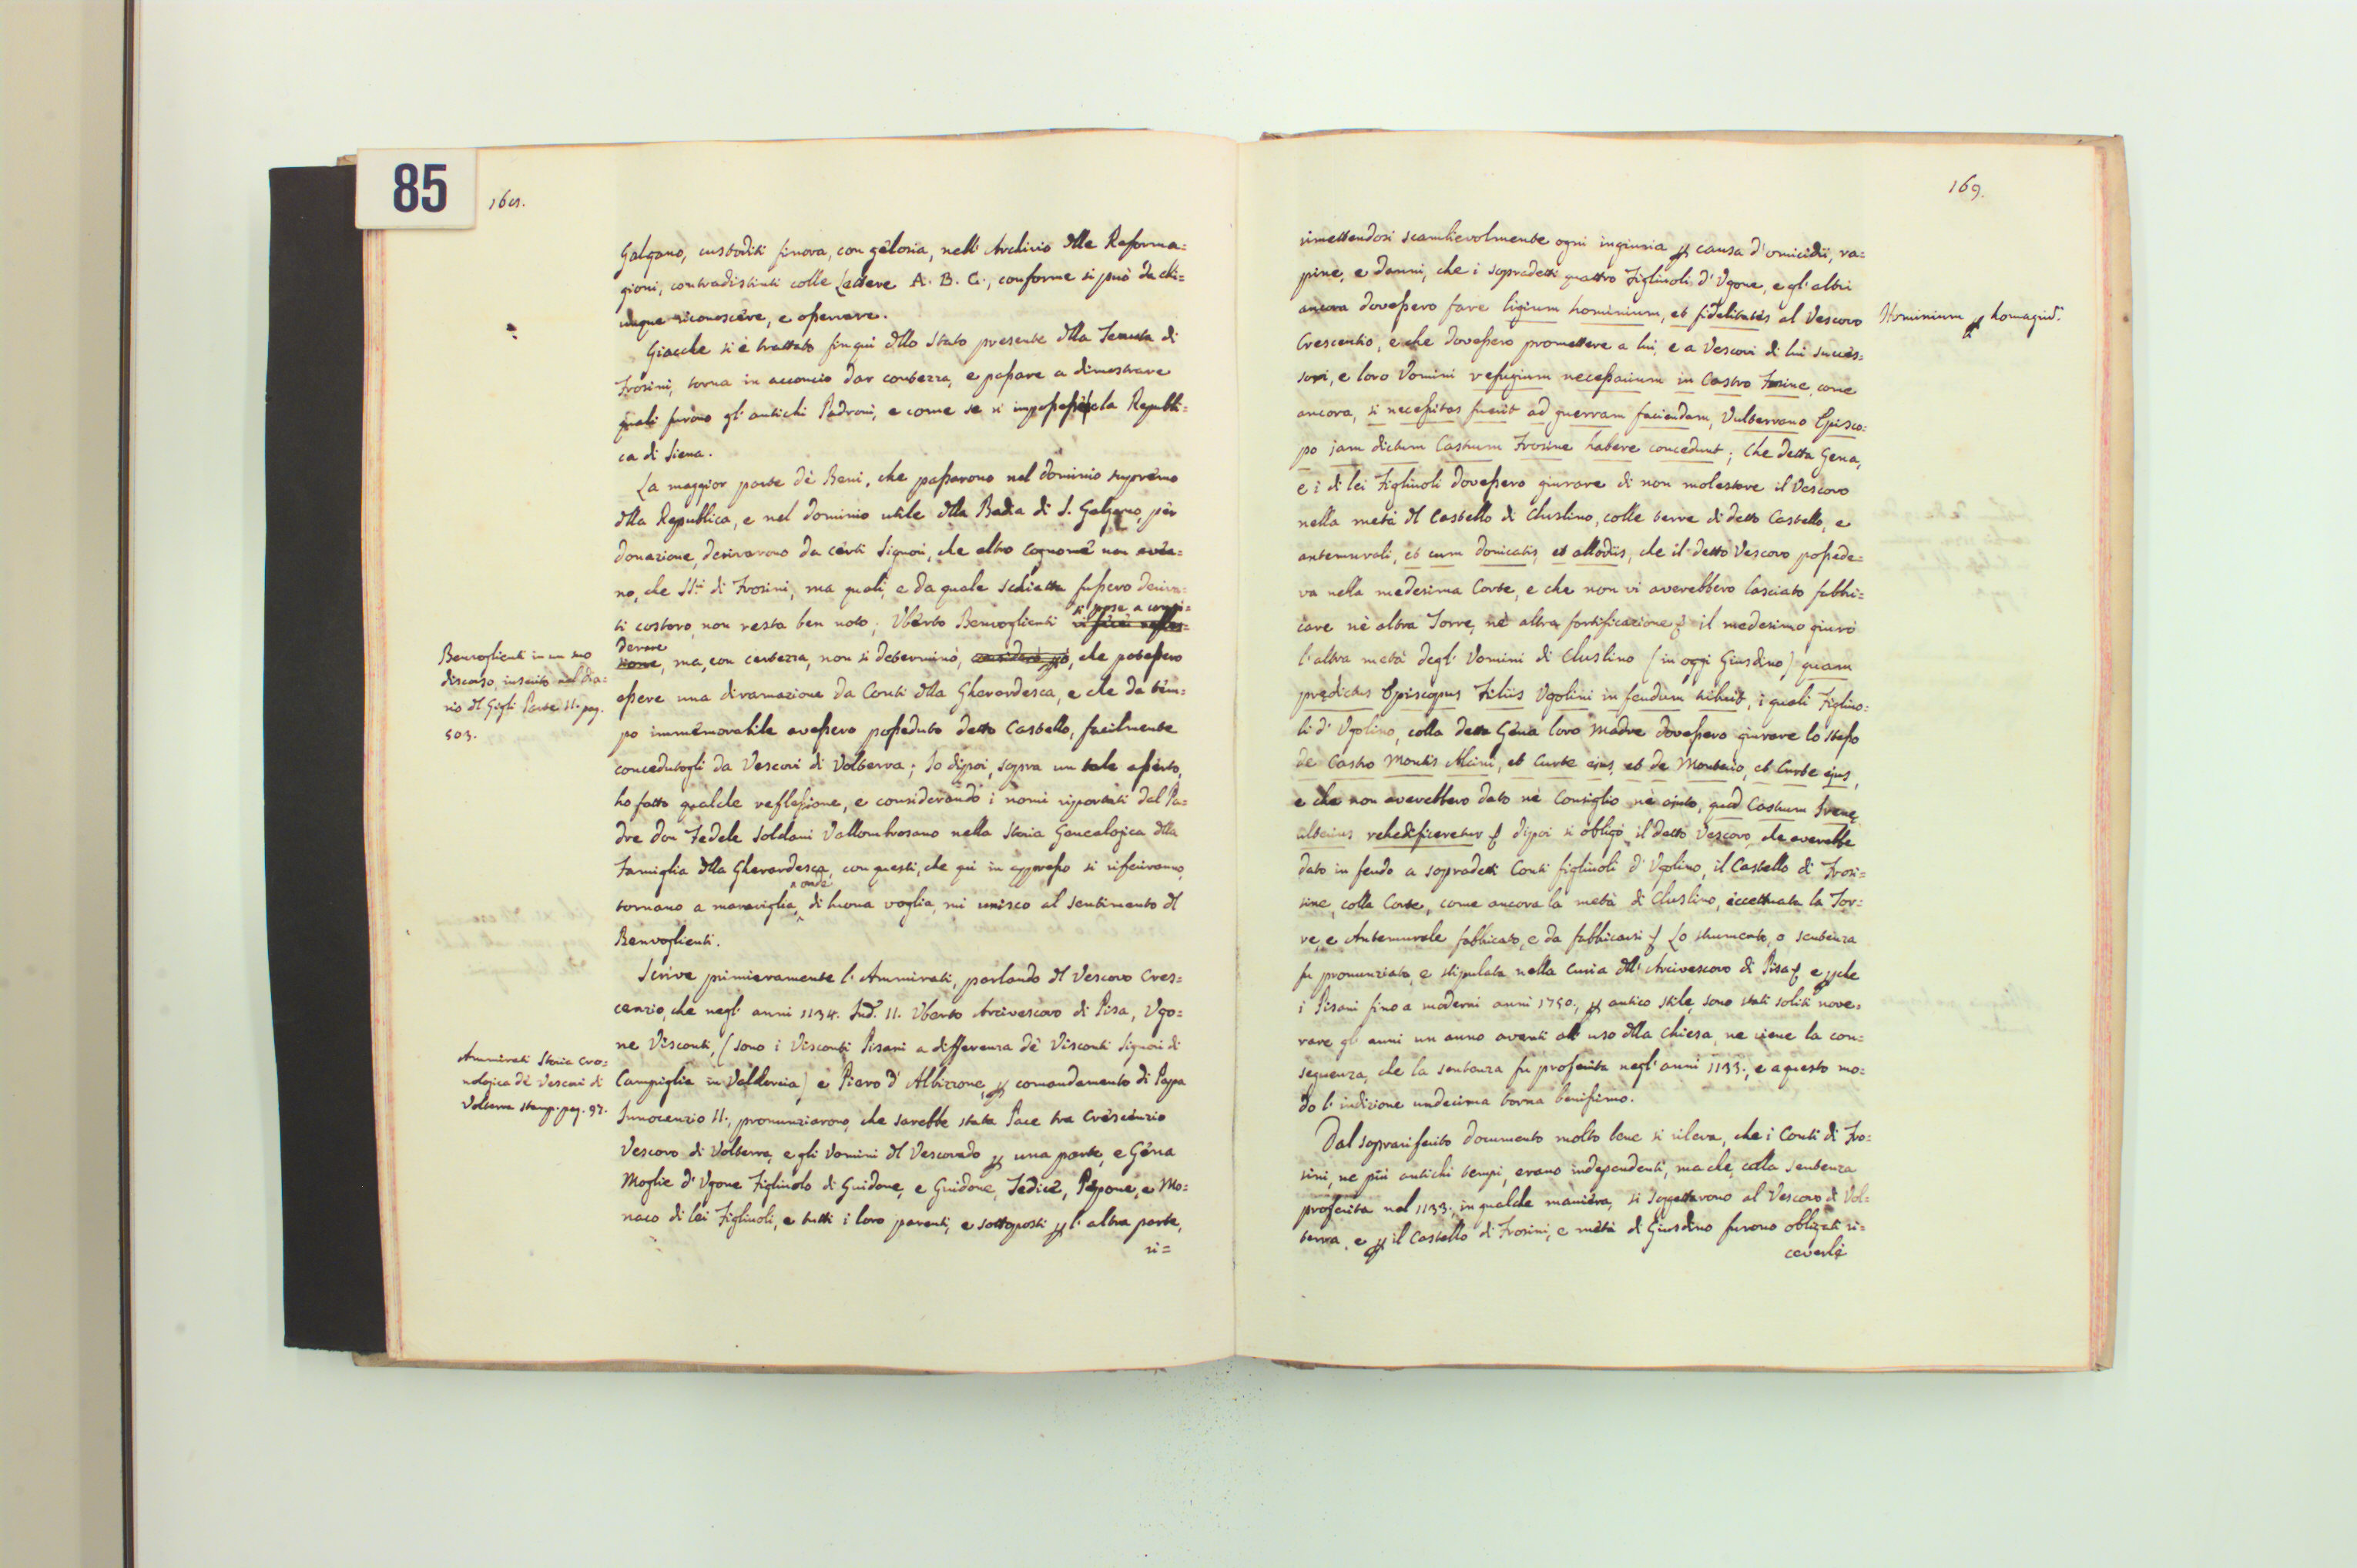 85
168.
Galgano, custoditi finora, con gelosia, nell' Archivio dlle Reforma=
gioni, contradistinti colle Lettere A. B. C., conforme si può da chi=
unque riconoscere, e osservare.
Giacche si è trattato fin qui dllo Stato presente dlla Tenuta di
Frosini, torna in acconcio dar contezza, e passare a dimostrare
quali furono gl' antichi Padroni, e come se ne impossessò la Repubbli=
ca di Siena.
La maggior parte dè Beni, che passarono nel dominio supremo
dlla Republica, e nel dominio utile dlla Badia di S. Galgano, per
donazione, derivarono da certi Signori, che altro cognome non avea=
no, che SS.ri di Frosini, ma quali, e da quale schiatta fussero deriva=
ti costoro, non resta ben noto; Uberto Benvoglienti si pose a consi=
derare, ma, con certezza, non si determinò, che potessero
essere una diramazione da Conti dlla Gherardesca, e che da tem=
po immemorabile avessero posseduto detto Castello, facilmente
concedutogli da Vescovi di Volterra; Io dipoi, sopra un tale asserto,
ho fatto qualche reflessione, e considerando i nomi riportati dal Pa=
dre don Fedele Soldani Vallombrosano nella Storia Genealogica dlla
Famiglia dlla Gherardesca, con questi, che qui in appresso si riferiranno,
tornano a maraviglia, onde di buona voglia, mi unisco al sentimento dl
Benvoglienti.
Scrive primieramente l' Ammirati, parlando dl Vescovo Cres=
cenzio, che negl' anni 1134. Ind. 11. Uberto Arcivescovo di Pisa, Ugo=
ne Visconti, (sono i Visconti Pisani a differenza dè Visconti Signori di
Campiglia in Valdorcia) e Piero d' Albizzone, p comandamento di Papa
Innocenzio II., pronunziarono, che sarebbe stata Pace tra Crescenzio
Vescovo di Volterra, e gli Uomini dl Vescovado p una parte, e Gena
Moglie d' Ugone Figliuolo di Guidone, e Guidone, Tedice, Pepone, e Mo=
naco di lei Figliuoli, e tutti i loro parenti, e sottoposti p l' altra parte,
ri=
Benvoglienti in un suo
discorso, inserito nel Dia=
rio dl Gigli Parte II. pag.
503.
Ammirati Storia Cro=
nologica dè Vescovi di
Volterra stamp. pag. 97.
169.
rimettendosi scambievolmente ogni ingiuria p causa d' omicidii, ra=
pine, e danni, che i sopradetti quattro Figliuoli d' Ugone, e gl' altri
ancora dovessero fare ligium hominium, et fidelitates al Vescovo
Crescentio, e che dovessero promettere a lui, e a Vescovi di lui succes=
sori, e loro Uomini refugium necessarium in Castro Frosine, come
ancora, si necessitas fuerit ad guerram faciendam, Vulterrano Episco=
po jam dictum Castrum Frosine habere concedunt; Che detta Gena,
e i di lei Figliuoli dovessero giurare di non molestare il Vescovo
nella metà dl Castello di Cluslino, colle terre di detto Castello, e
antemurali, et cum donicatis, et allodiis, che il detto Vescovo possede=
va nella medesima Corte, e che non vi averebbero lasciato fabbri=
care nè altra Torre, nè altra fortificazione; il medesimo giurò
l' altra metà degl' Uomini di Cluslino (in oggi Giusdino) quam
prędictus Episcopus Filiis Ugolini in feudum tribuit, i quali Figliuo=
li d' Ugolino, colla detta Gena loro Madre dovessero giurare lo stesso
de Castro Montis Alcini, et Curte ejus, et de Monterio, et Curte ejus,
e che non averebbero dato nè Consiglio nè ajuto, quod Castrum Irene
ulterius rehedificeretur; dipoi si obligò il detto Vescovo, che averebbe
dato in feudo a sopradetti Conti figliuoli d' Ugolino, il Castello di Frosi=
sine, colla Corte, come ancora la metà di Cluslino, eccettuata la Tor=
re, e Antemurale fabbricato, e da fabbricarsi; Lo strumento, o sentenza
fu pronunziata, e stipulata nella Curia dll' Arcivescovo di Pisa; e pche
i Pisani fino a moderni anni 1750., p antico stile, sono stati soliti nove=
rare gl' anni un anno avanti all' uso dlla Chiesa, ne viene la con=
seguenza, che la sentenza fu proferita negl' anni 1133., e a questo mo=
do l' indizione undecima torna benissimo.
Dal sopranriferito documento molto bene si rileva, che i Conti di Fro=
sini, ne più antichi tempi, erano independenti, ma che, colla sentenza
proferita nel 1133., in qualche maniera, si soggettarono al Vescovo di Vol=
terra, e p il Castello di Frosini, e metà di Giusdino furono obligati ri=
ceverli
Hominium p homagiu.